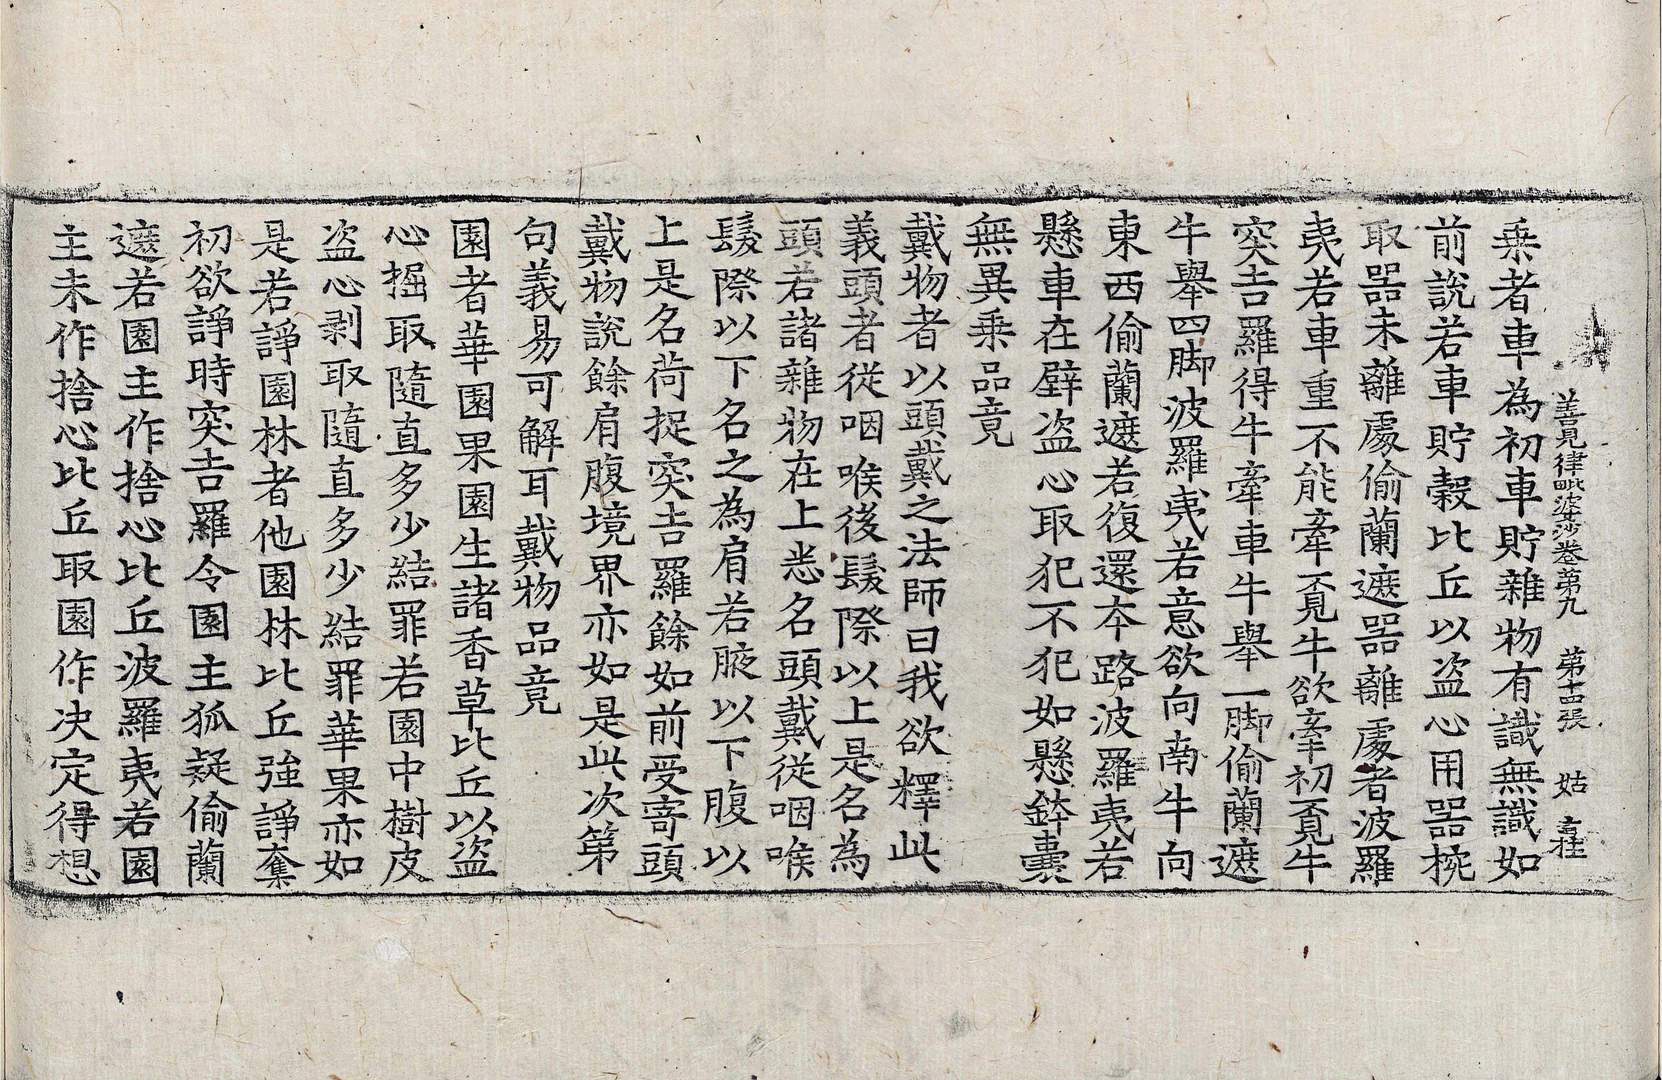 善見律毗婆沙卷第九 第十四張 姑 桂
乘者車為初車貯雜物有識無識如
前說若車貯穀比丘以盜心用器椀
取器未離處偷蘭遮器離處者波羅
夷若車重不能牽覓牛欲牽初覓牛
突吉羅得牛牽車牛舉一脚偷蘭遮
牛舉四脚波羅夷若意欲向南牛向
東西偷蘭遮若復還本路波羅夷若
懸車在壁盜心取犯不犯如懸鉢囊
無異乘品竟
戴物者以頭戴之法師曰我欲釋此
義頭者從咽喉後髮際以上是名為
頭若諸雜物在上悉名頭戴從咽喉
髮際以下名之為肩若腋以下腹以
上是名荷捉突吉羅餘如前受寄頭
戴物說餘肩腹境界亦如是此次第
句義易可解耳戴物品竟
園者華園果園生諸香草比丘以盜
心掘取隨直多少結罪若園中樹皮
盜心剥取隨直多少結罪華果亦如
是若諍園林者他園林比丘強諍奪
初欲諍時突吉羅令園主狐疑偷蘭
遮若園主作捨心比丘波羅夷若園
主未作捨心比丘取園作决定得想